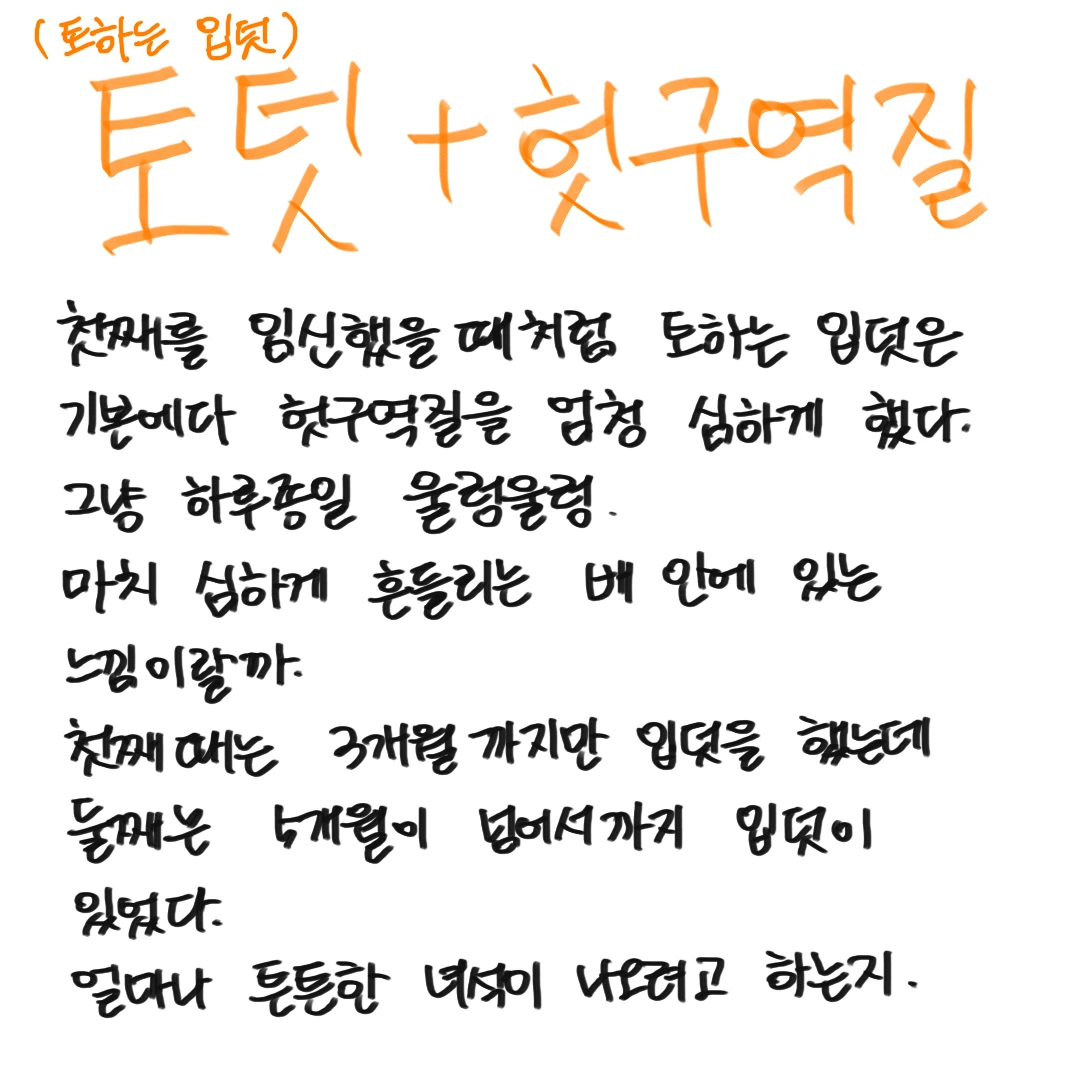 (토하는 입덧)
토덧 + 헛구역질
첫째를 임신했을 때처럼 토하는 입덧은
기본에다 헛구역질을 엄청 심하게 했다.
그냥 하루종일 울렁울렁.
마치 심하게 흔들리는 배 안에 있는
느낌이랄까.
첫째 때는 3개월까지만 입덧을 했는데
둘째는 5개월이 넘어서까지 입덧이
있었다.
얼마나 튼튼한 녀석이 나오려고 하는지.